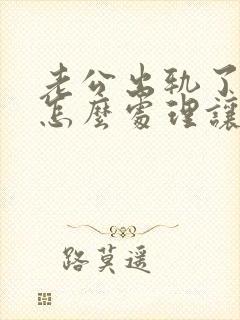 老公出轨了
怎麼處理讓
路莫遥